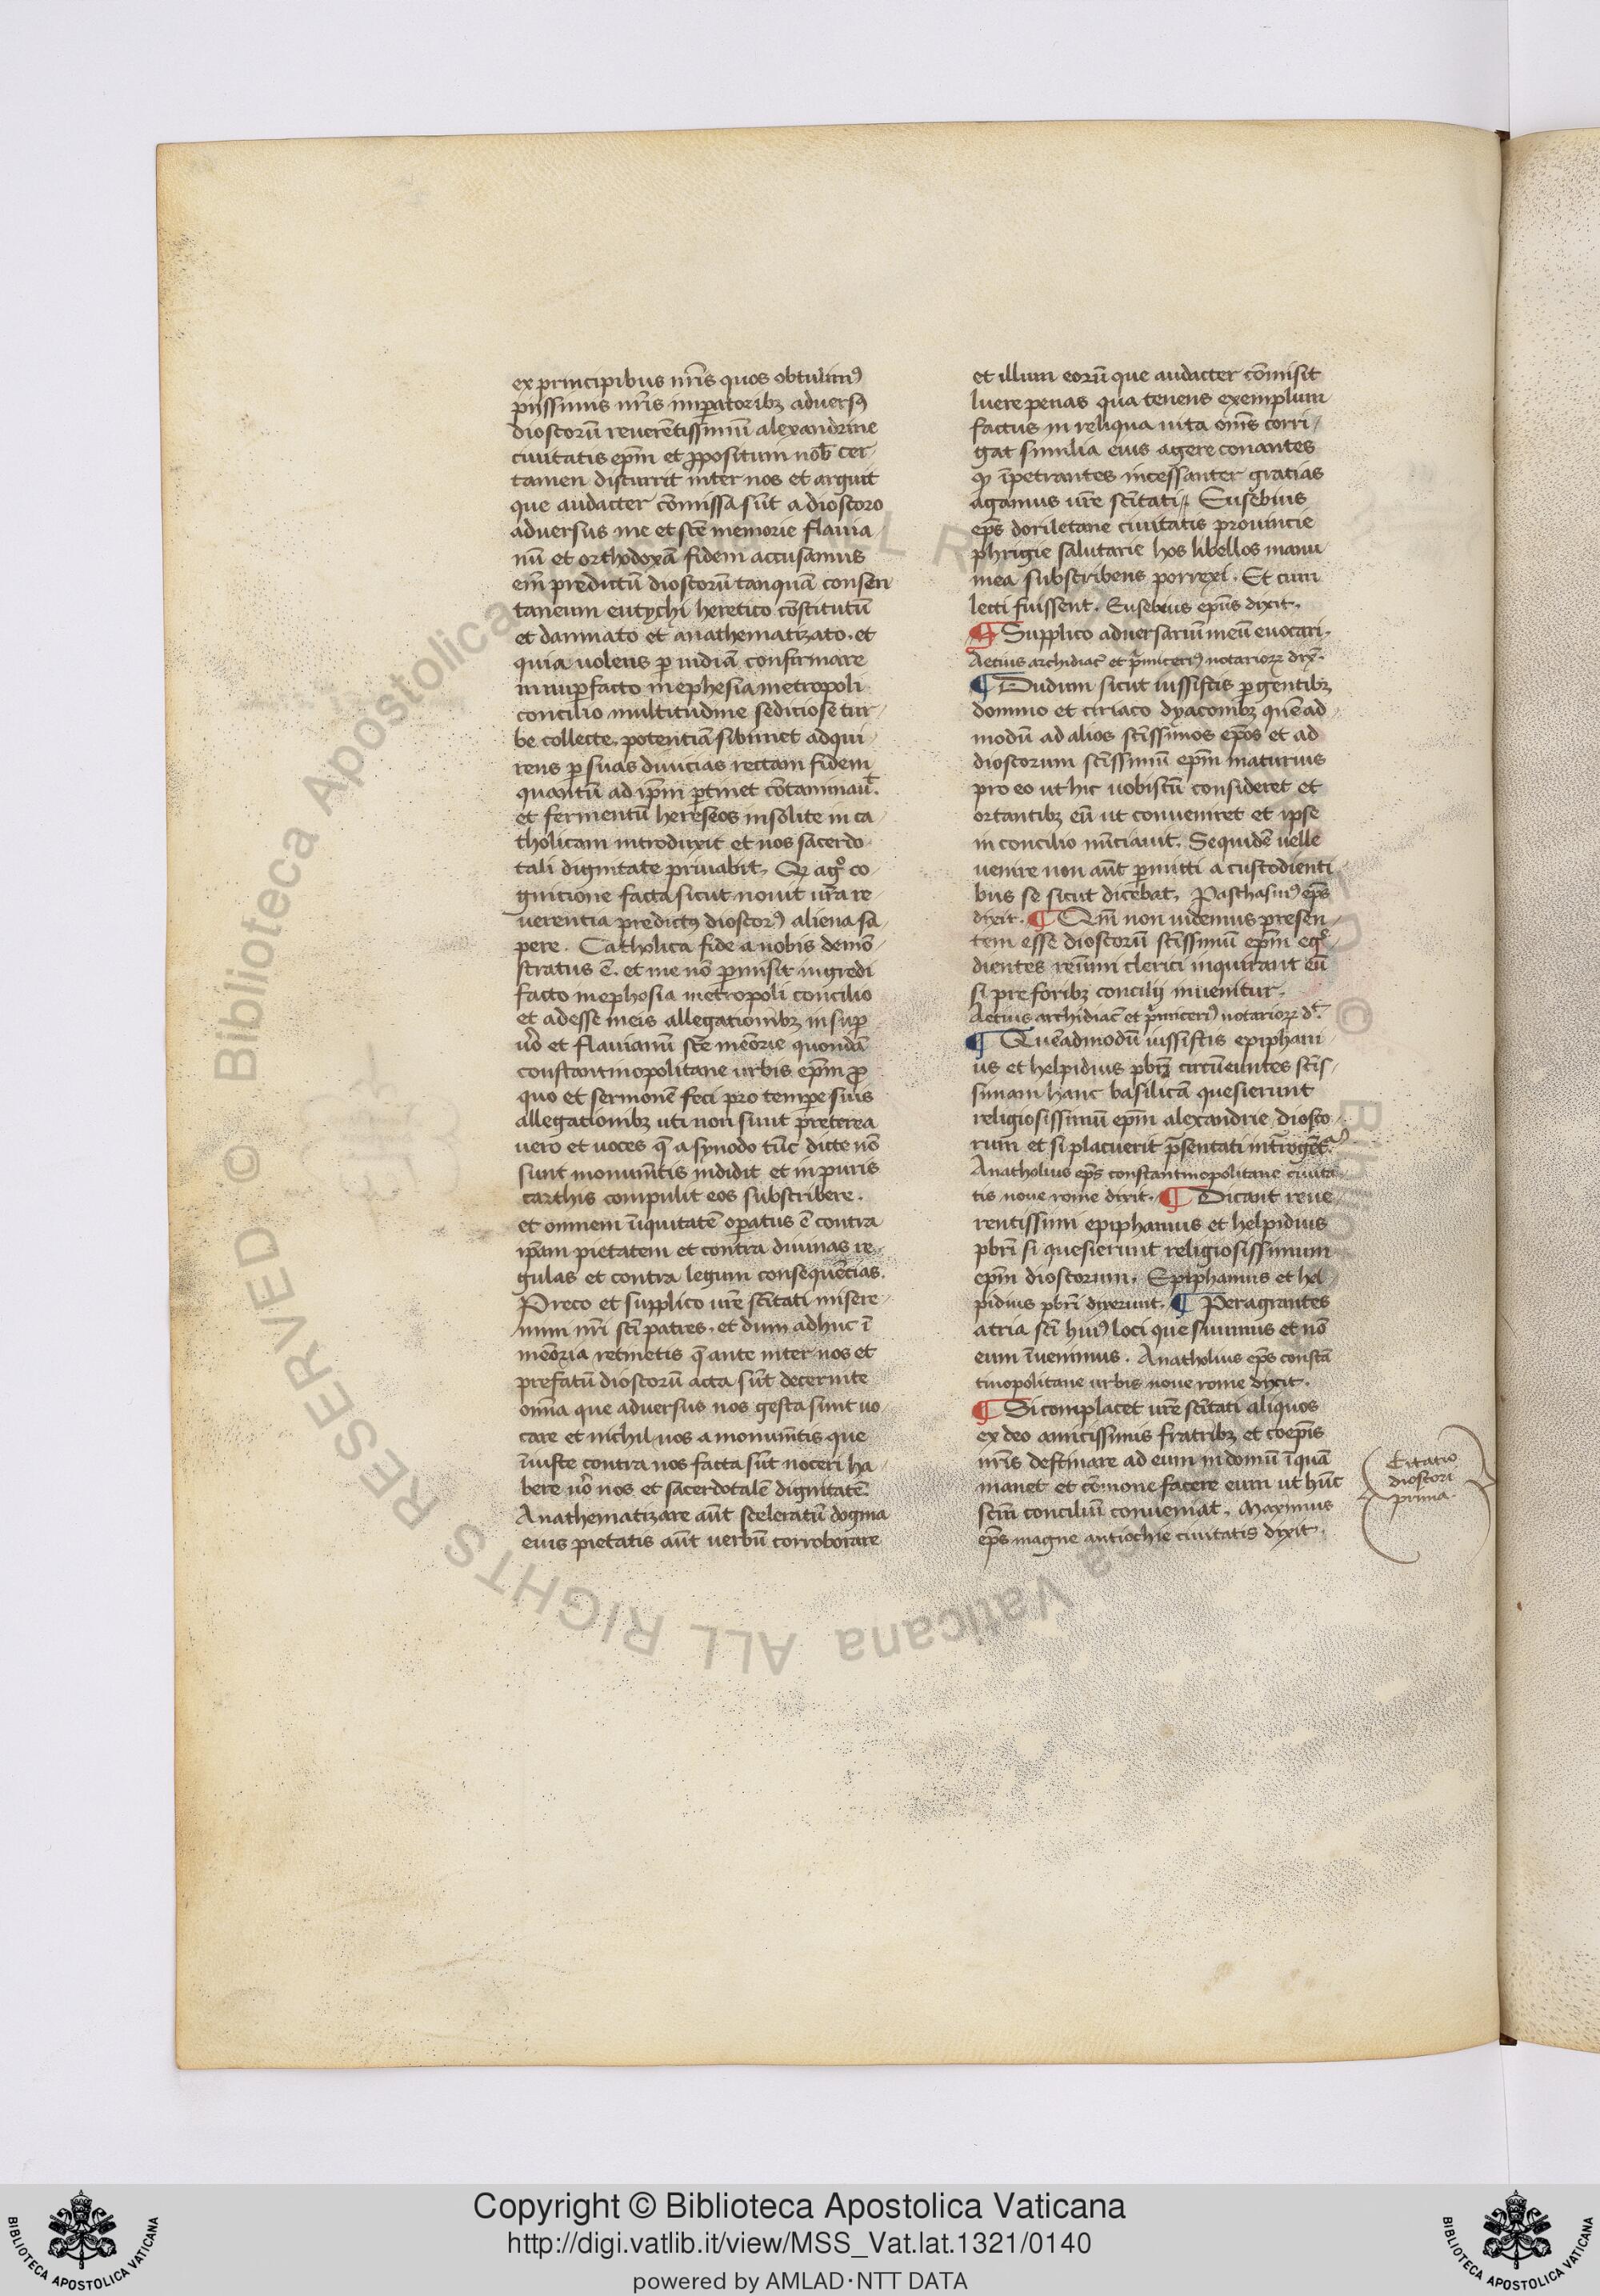 ex principibus nr̄is quos obtulimꝰ
piissimis nr̄is imꝑatoribꝫ aduersꝰ
dioscorū reuerētissimū alexandrine
ciuitatis ep̄m et ꝓpositum nob̄ cer
tamen discurrit inter nos et arguit
que audacter cōmissa sūt a dioscoro
aduersus me et sc̄e memorie flauia
nū et orthodoxā fidem accusamus
em̄ predictū dioscorū tanquā consen
taneum eutychi heretico cōstitutū
et damnato et anathematizato. et
quia uolens ꝑ indiā confirmare
in nuꝑ facto in ephesia metropoli
concilio multitudine sediciose tur
be collecte. potentiā sibimet adqui
rens ꝑ suas diuicias rectam fidem
quantū ad ip̄m ꝑtinet cōtaminaut̄.
et fermentū hereseos insolite in ca
tholicam introduxit et nos sacerdo
tali dignitate priuabit. Qꝫ agͦ co
gnicione facta sicut nouit ur̄a re
uerentia predictꝰ dioscorꝰ aliena sa
pere. Catholica fide a uobis demō
stratus ē. et me nō ꝑmisit ingredi
facto in ephesia metropoli concilio
et adesse meis allegationibꝫ insuꝑ
ūo et flauianū sc̄e mēorie quondā
constantinopolitane urbis ep̄m ꝓ
quo et sermonē feci pro tempe suis
allegationibꝫ uti non sunt preterea
uero et uoces q̄ a synodo tūc dicte nō
sunt monum̄tis indidit et in puris
carthis compulit eos subscribere.
et omnem īiquitatē oꝑatus ē contra
ip̄am pietatem et contra diuinas re
gulas et contra legum consequētias.
Preco et supplico ur̄e sc̄itati misere
mini nr̄i sc̄i patres. et dum adhuc ī
mēoria retinetis q̄ ante inter nos et
prefatū dioscorū acta sūt decernite
om̄a que aduersus nos gesta sunt uo
care et nichil nos a monum̄tis que
īiuste contra nos facta sūt noceri ha
bere ūo nos et sacerdotalē dignitatē.
Anathematizare aūt sceleratū dogma
eius pietatis aūt uerbū corroborare
et illum eorū que audacter cōmisit
luere penas qua tenens exemplum
factus in reliqua uita om̄s corri
gat similia eius agere conantes
qꝫ īpetrantes incessanter gratias
agamus ur̄e sc̄itati. Eusebius
ep̄s doriletane ciuitatis prouincie
phrigie salutarie hos libellos manu
mea subscribens porrexi. Et cum
lecti fuissent. Eusebius ep̄us dixit.
¶ Supplico aduersariū meū euocari.
Aetius archidiac̄ et p̄miceriꝰ notarioꝝ dix̄.
¶ Dudum sicut iussistis ꝑgentibꝫ
domno et ciriaco dyaconibꝫ quē ad
modū ad alios sc̄issimos ep̄os et ad
dioscorum sc̄issimū ep̄m maturius
pro eo ut hic uobiscū consideret et
ortantibꝫ eū ut conueniret et ipse
in concilio nūciauit. Se quidē uelle
uenire non aūt ꝑmitti a custodienti
bus se sicut dicebat. Paschasinꝰ ep̄s
dixit. ¶ Qm̄ non uidemus presen
tem esse dioscorū sc̄issimū ep̄m egͦ
dientes reūmi clerici inquirant eū
si pre foribꝫ concilij inuenitur.
Aetius archidiac̄ et p̄miceriꝰ notarioꝝ dt̄.
¶ Quēadmodū iussistis epiphani
us et helpidius pbrī circūeuntes sc̄is
simam hanc basilicā quesierunt
religiosissimū ep̄m alexandrie diosco
rum et si placuerit p̄sentati int̄roget̄ᵃꝰ
Anatholius ep̄s constantinopolitane ciuita
tis noue rome dixit. ¶ Dicant reue
rentissimi epiphanius et helpidius
pbrī si quesierunt religiosissimum
ep̄m dioscorum. Epiphanius et hel
pidius pbrī dixerunt. ¶ Peragrantes
atria sc̄i huiꝰ loci quesiuimus et nō
eum īuenimus. Anatholius ep̄s constā
tinopolitane urbis noue rome dixit.
¶ Si complacet ur̄e sc̄itati aliquos
ex deo amicissimis fratribꝫ et coep̄is
nr̄is destinare ad eum in domū ī quā
manet et cōmone facere eum ut hūc
sc̄m conciliū conueniat. Maximus
ep̄s magne antiochie ciuitatis dixit.
Citatio
dioscori
prima.
© Biblioteca Apostolica Vaticana ALL RIGHTS RESERVED
Copyright © Biblioteca Apostolica Vaticana
http://digi.vatlib.it/view/MSS_Vat.lat.1321/0140
powered by AMLAD·NTT DATA
BIBLIOTECA APOSTOLICA VATICANA
BIBLIOTECA APOSTOLICA VATICANA